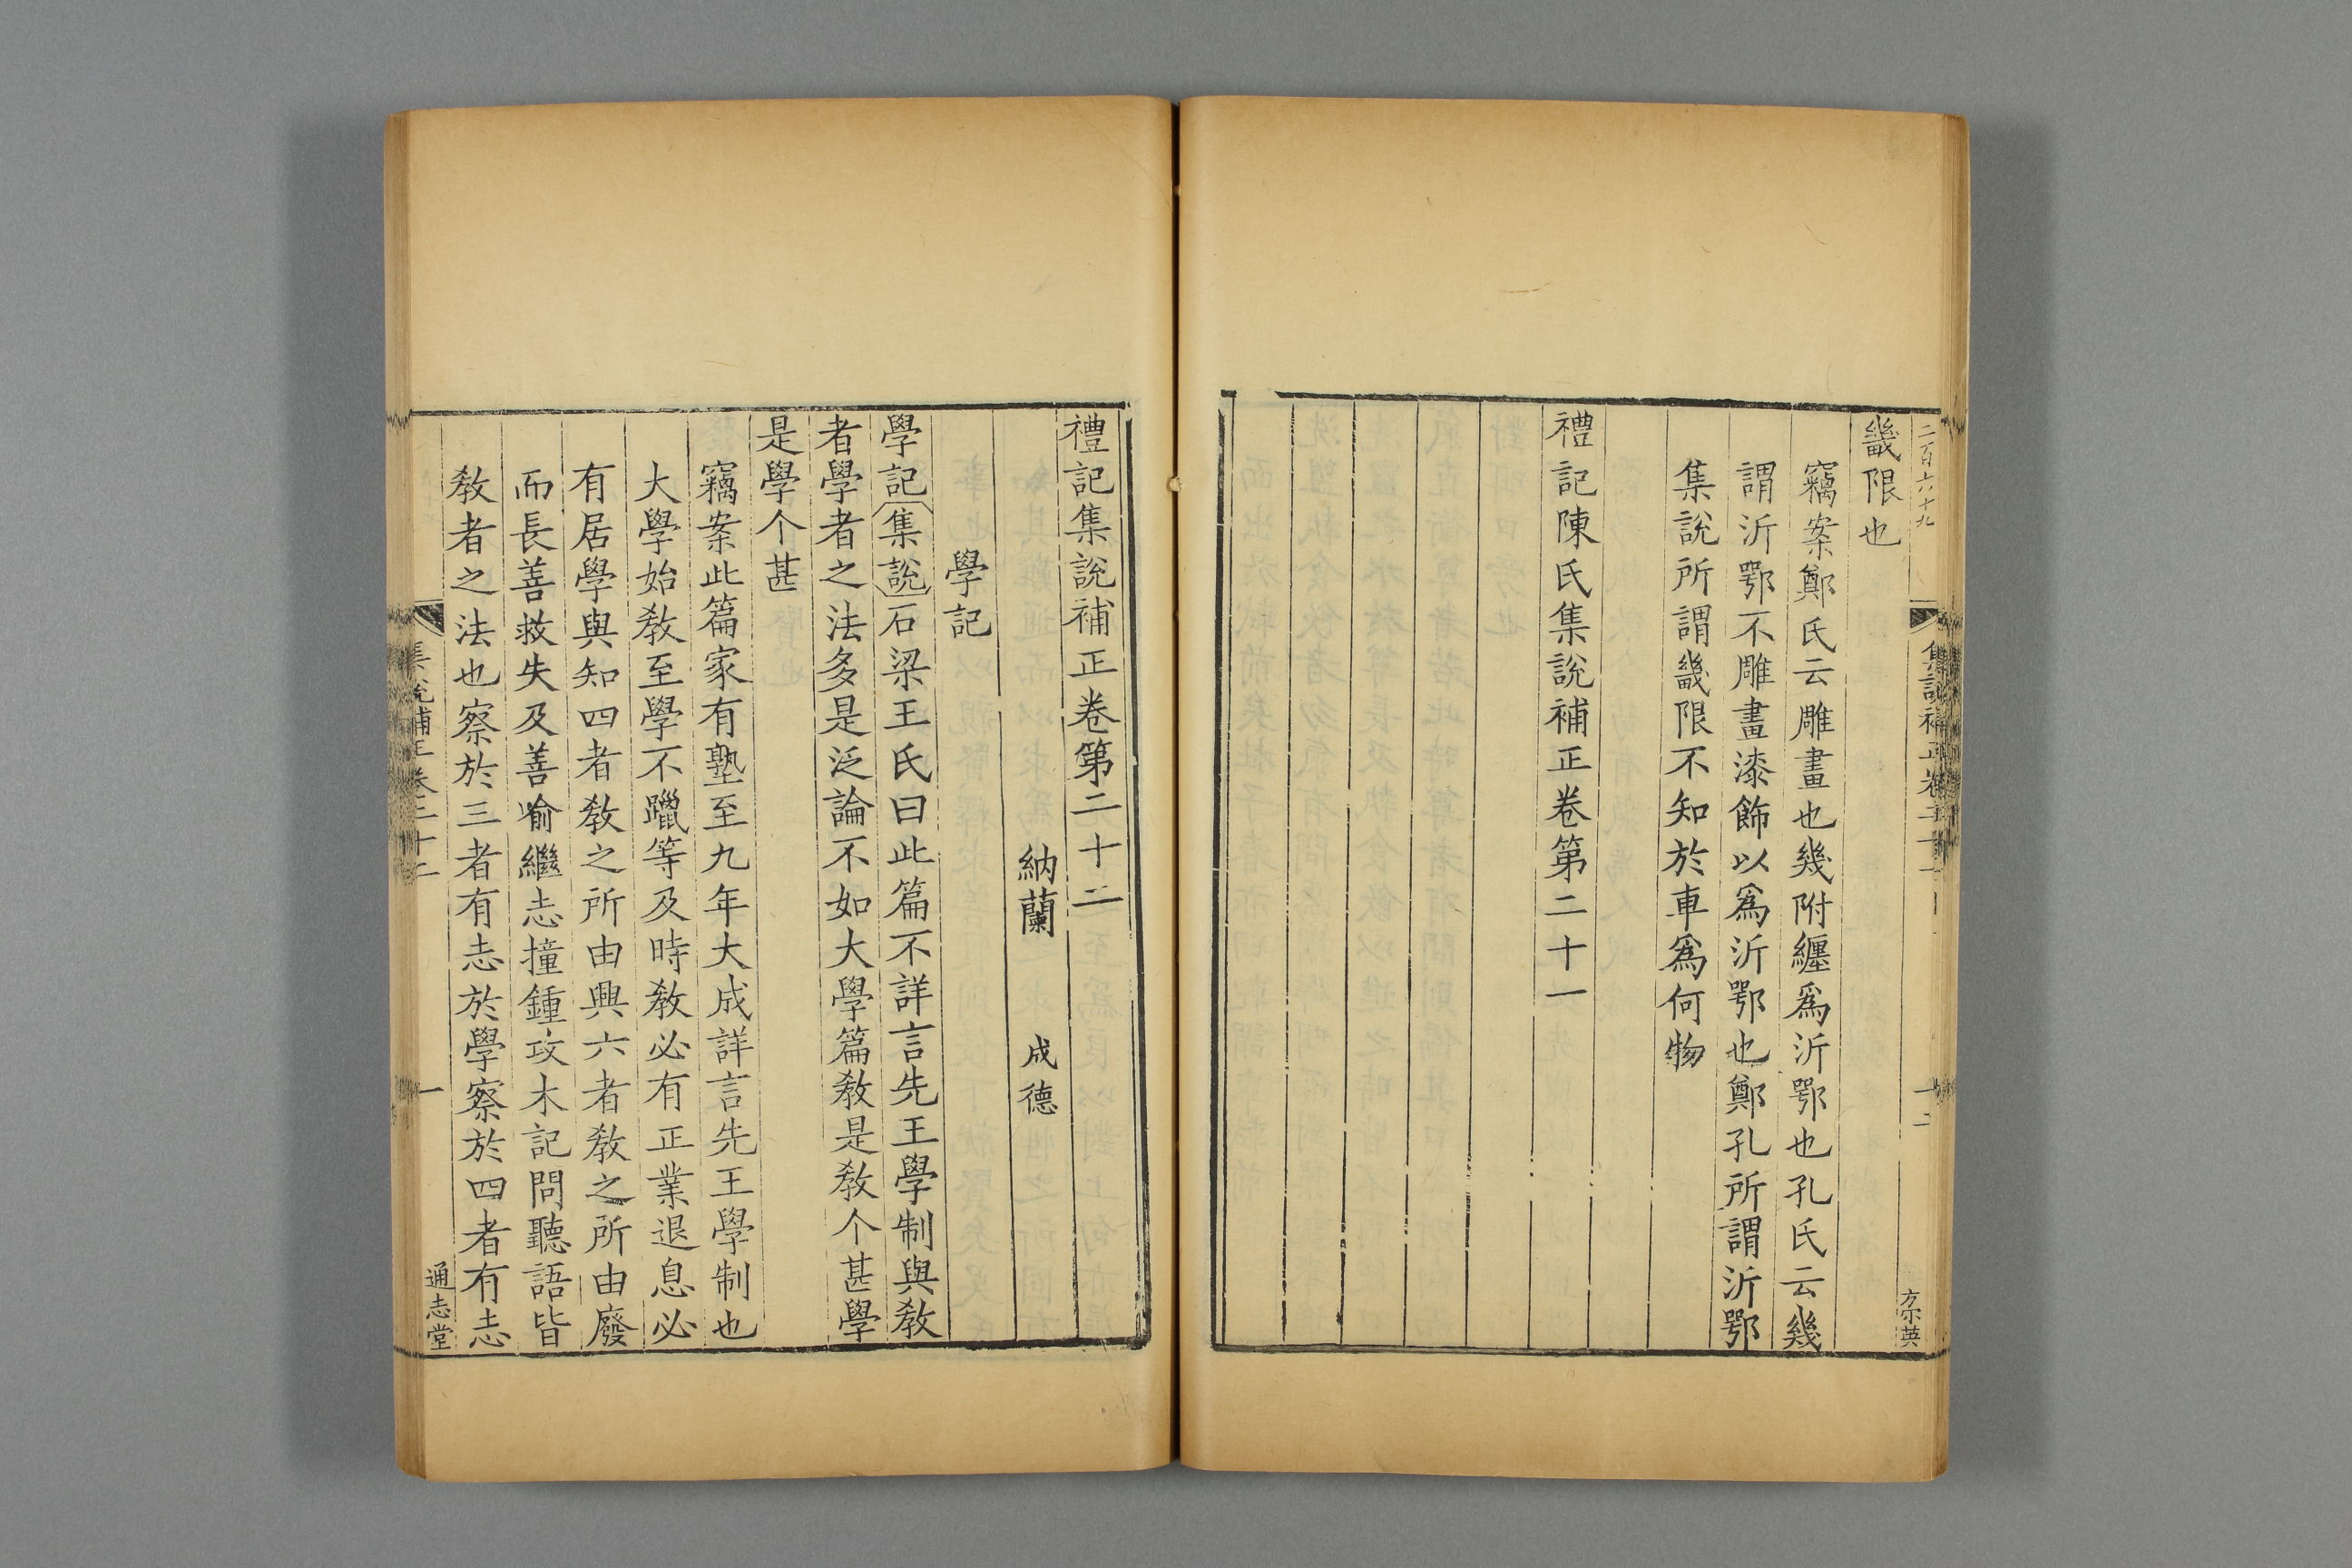 二百六十九
集說補正卷二十一
十二
方宗英
畿限也
竊案鄭氏云雕畫也幾附纏爲沂鄂也孔氏云幾
謂沂鄂不雕畫漆飾以爲沂鄂也鄭孔所謂沂鄂
集說所謂畿限不知於車爲何物
禮記陳氏集說補正卷第二十一
禮記集說補正卷第二十二
納蘭 成德
學記
學記集說石梁王氏曰此篇不詳言先王學制與敎
者學者之法多是泛論不如大學篇敎是敎个甚學
是學个甚
竊案此篇家有塾至九年大成詳言先王學制也
大學始敎至學不躐等及時敎必有正業退息必
有居學與知四者敎之所由興六者敎之所由廢
而長善救失及善喻繼志撞鐘攻木記問聽語皆
敎者之法也察於三者有志於學察於四者有志
集說補正卷二十二
一
通志堂